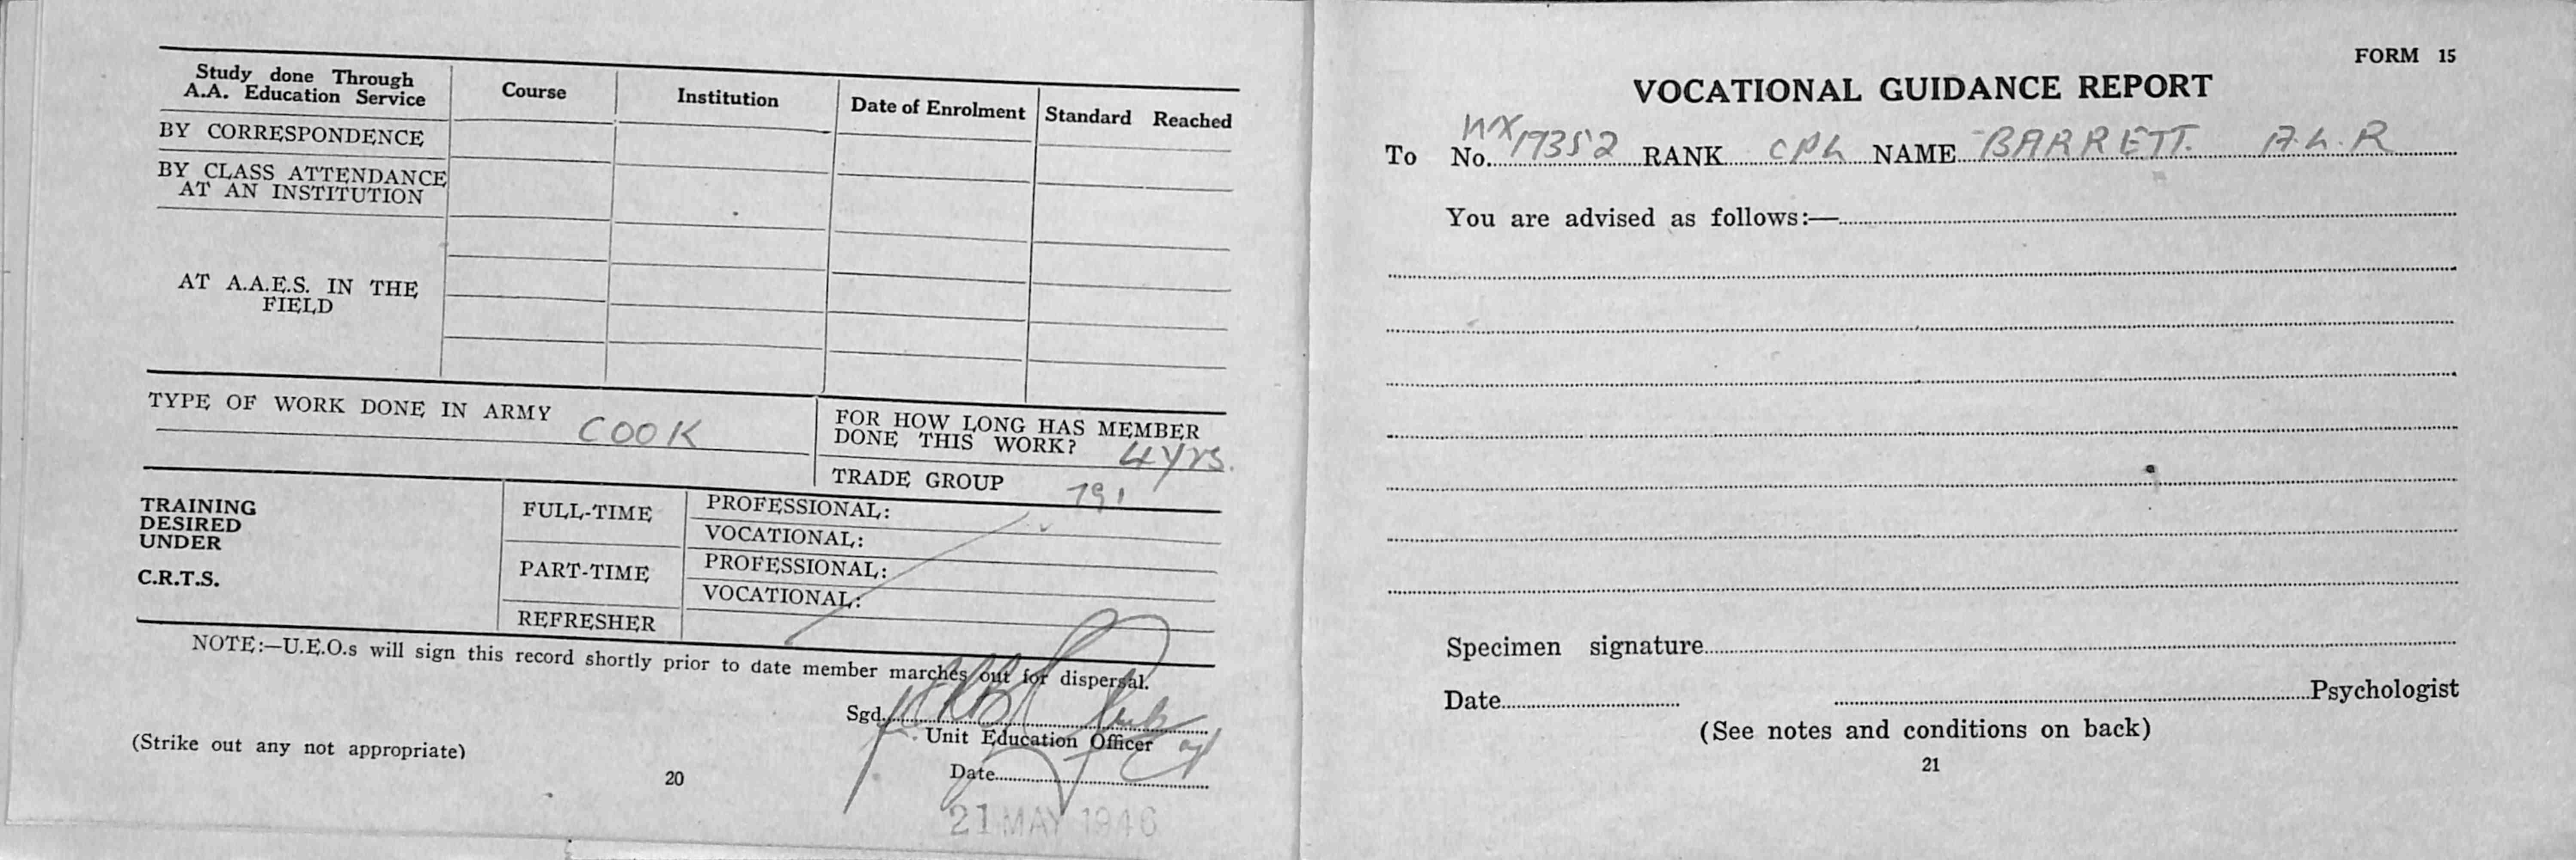 Study done Through A.A. Education Service
Course
Institution
Date of Enrolment
Standard Reached
BY CORRESPONDENCE
BY CLASS ATTENDANCE
AT AN INSTITUTION
AT A.A.E.S. IN THE
FIELD
TYPE OF WORK DONE IN ARMY
COOK
FOR HOW LONG HAS MEMBER
DONE THIS WORK? 4 yrs.
TRADE GROUP
TRAINING
DESIRED
UNDER
C.R.T.S.
FULL-TIME
PROFESSIONAL:
VOCATIONAL:
PART-TIME
PROFESSIONAL:
VOCATIONAL:
REFRESHER
NOTE:—U.E.O.s will sign this record shortly prior to date member marches out for dispersal.
Sgd.
Unit Education Officer
(Strike out any not appropriate)
Date
20
21 MAY 1946
FORM 15
VOCATIONAL GUIDANCE REPORT
To No. 17352 RANK CPL NAME BARRETT. A.L.R
You are advised as follows:—
Specimen signature
Date Psychologist
(See notes and conditions on back)
21